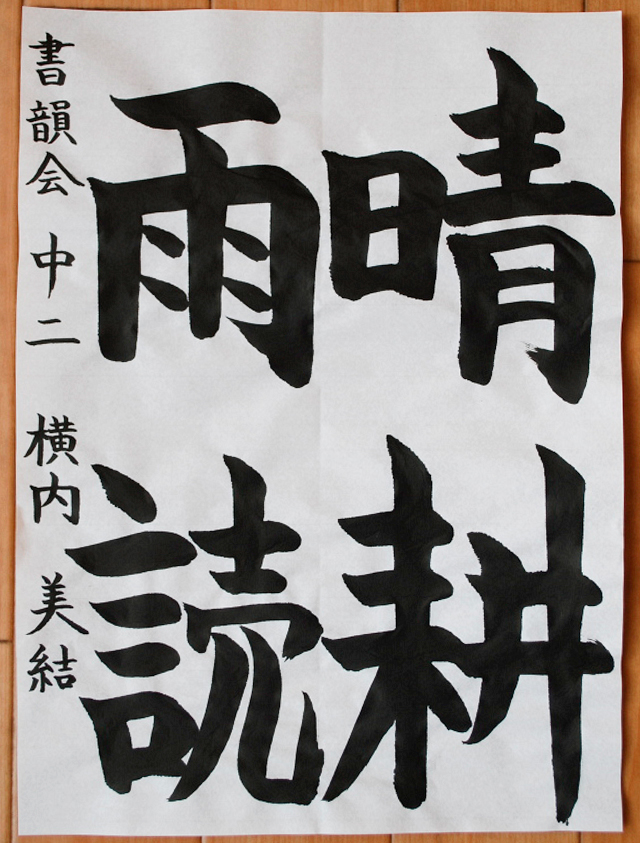 晴耕
雨読
書韻会 中二 横内 美結